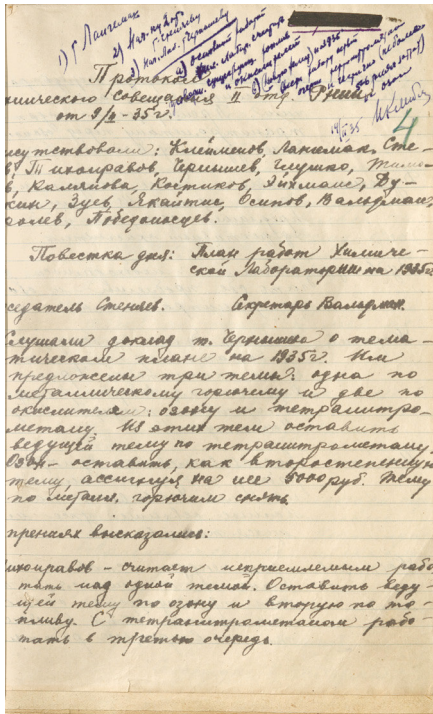 1) т Лангемак
2) Нач.
Протокол
технического совещания II отд. РНИИ
от 9/II - 35 г.
4
сутствовали: Клейменов, Лангемак, Сте-
в, Тихонравов, Чернышев, Глушко,
в, Каляйова, Костиков, Эйхманс, Ду-
кин, Зуев, Якайтис, Осипов, Вальдман,
ролев, Победоносцев.
Повестка дня: План работ Химиче-
ской Лаборатории на 1935 г
седатель Стеняев. Секретарь Вальдман.
Слушали доклад т. Чернышева о тема-
тическом плане на 1935 г. Им
предложены три темы: одна по
металлическому горючему и две по
окислителям: озону и тетранитро-
метану. Из этих тем оставить
ведущей тему по тетранитрометану.
Озон - оставить, как второстепенную
тему, ассигнуя на нее 5000 руб. Тему
по металл. горючим снять.
прениях высказались:
ихонравов - считает неприемлемым рабо
тать над одной темой. Оставить веду-
щей тему по озону и вторую по то-
пливу. С тетранитрометаном рабо-
тать в третью очередь.